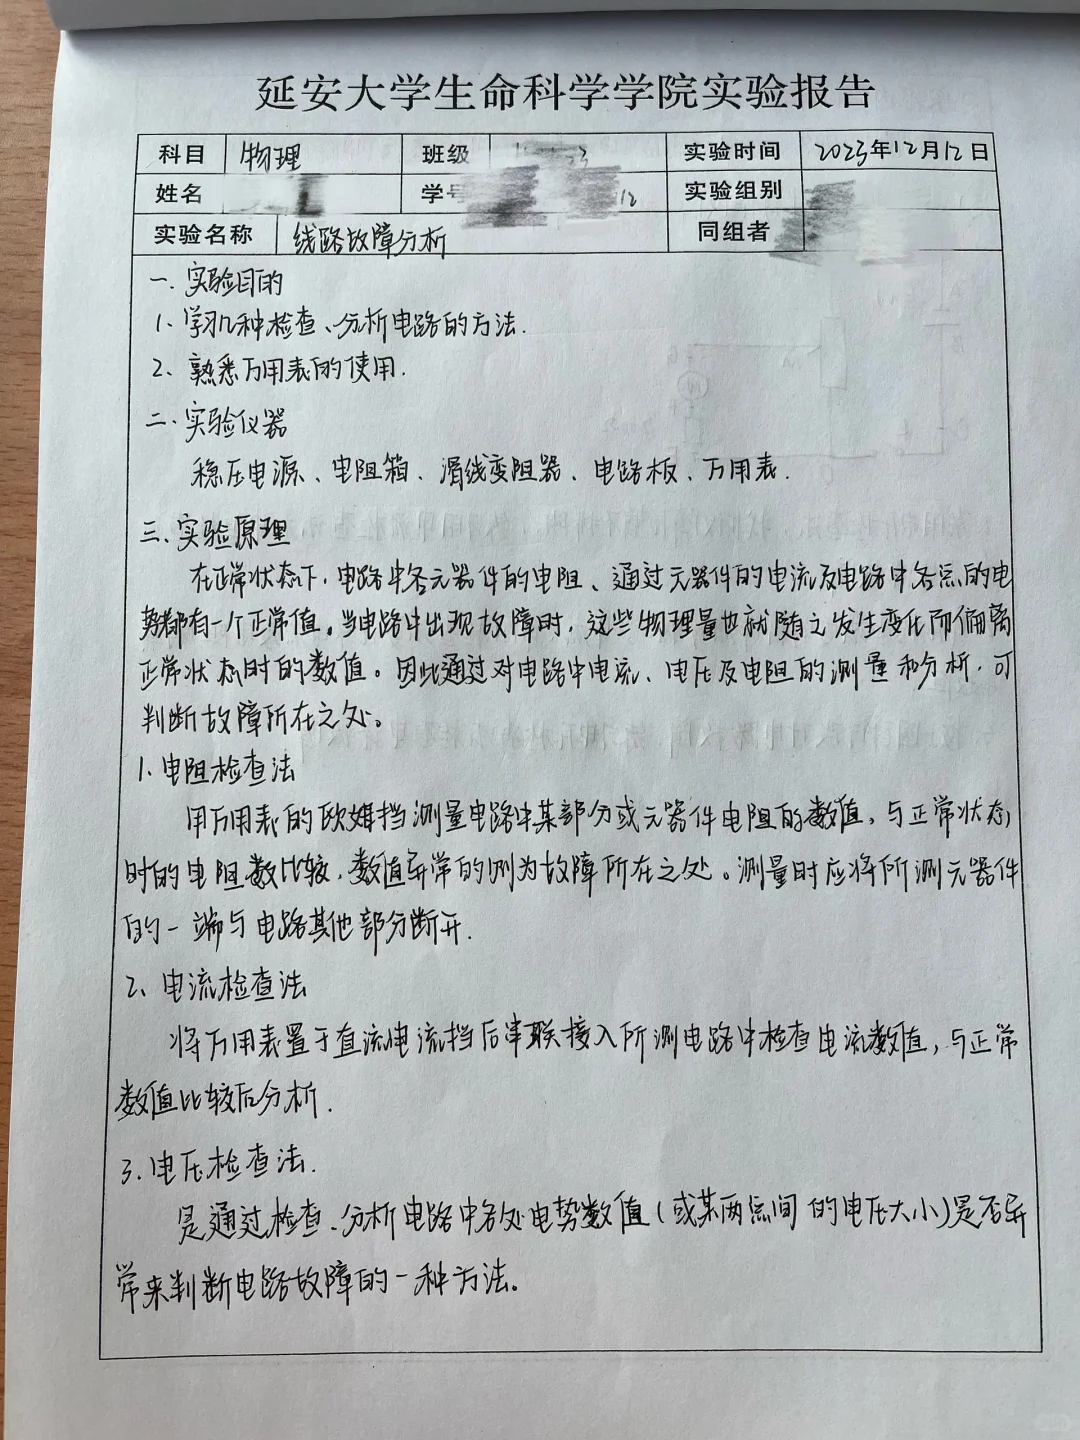 延安大学生命科学学院实验报告
科目 物理 班级 实验时间 2023年12月12日
姓名 学号 12 实验组别
实验名称 线路故障分析 同组者
一.实验目的
1、学习几种检查、分析电路的方法.
2、熟悉万用表的使用.
二.实验仪器
稳压电源、电阻箱、滑线变阻器、电路板、万用表.
三.实验原理
在正常状态下,电路中各元器件的电阻、通过元器件的电流及电路中各点的电
势都有一个正常值。当电路中出现故障时,这些物理量也就随之发生变化而偏离
正常状态时的数值。因此通过对电路中电流、电压及电阻的测量和分析,可
判断故障所在之处。
1.电阻检查法
用万用表的欧姆挡测量电路中某部分或元器件电阻的数值,与正常状态
时的电阻数比较,数值异常的则为故障所在之处。测量时应将所测元器件
的一端与电路其他部分断开.
2、电流检查法
将万用表置于直流电流挡后串联接入所测电路中检查电流数值,与正常
数值比较后分析.
3.电压检查法.
是通过检查、分析电路中各处电势数值(或某两点间的电压大小)是否异
常来判断电路故障的一种方法。